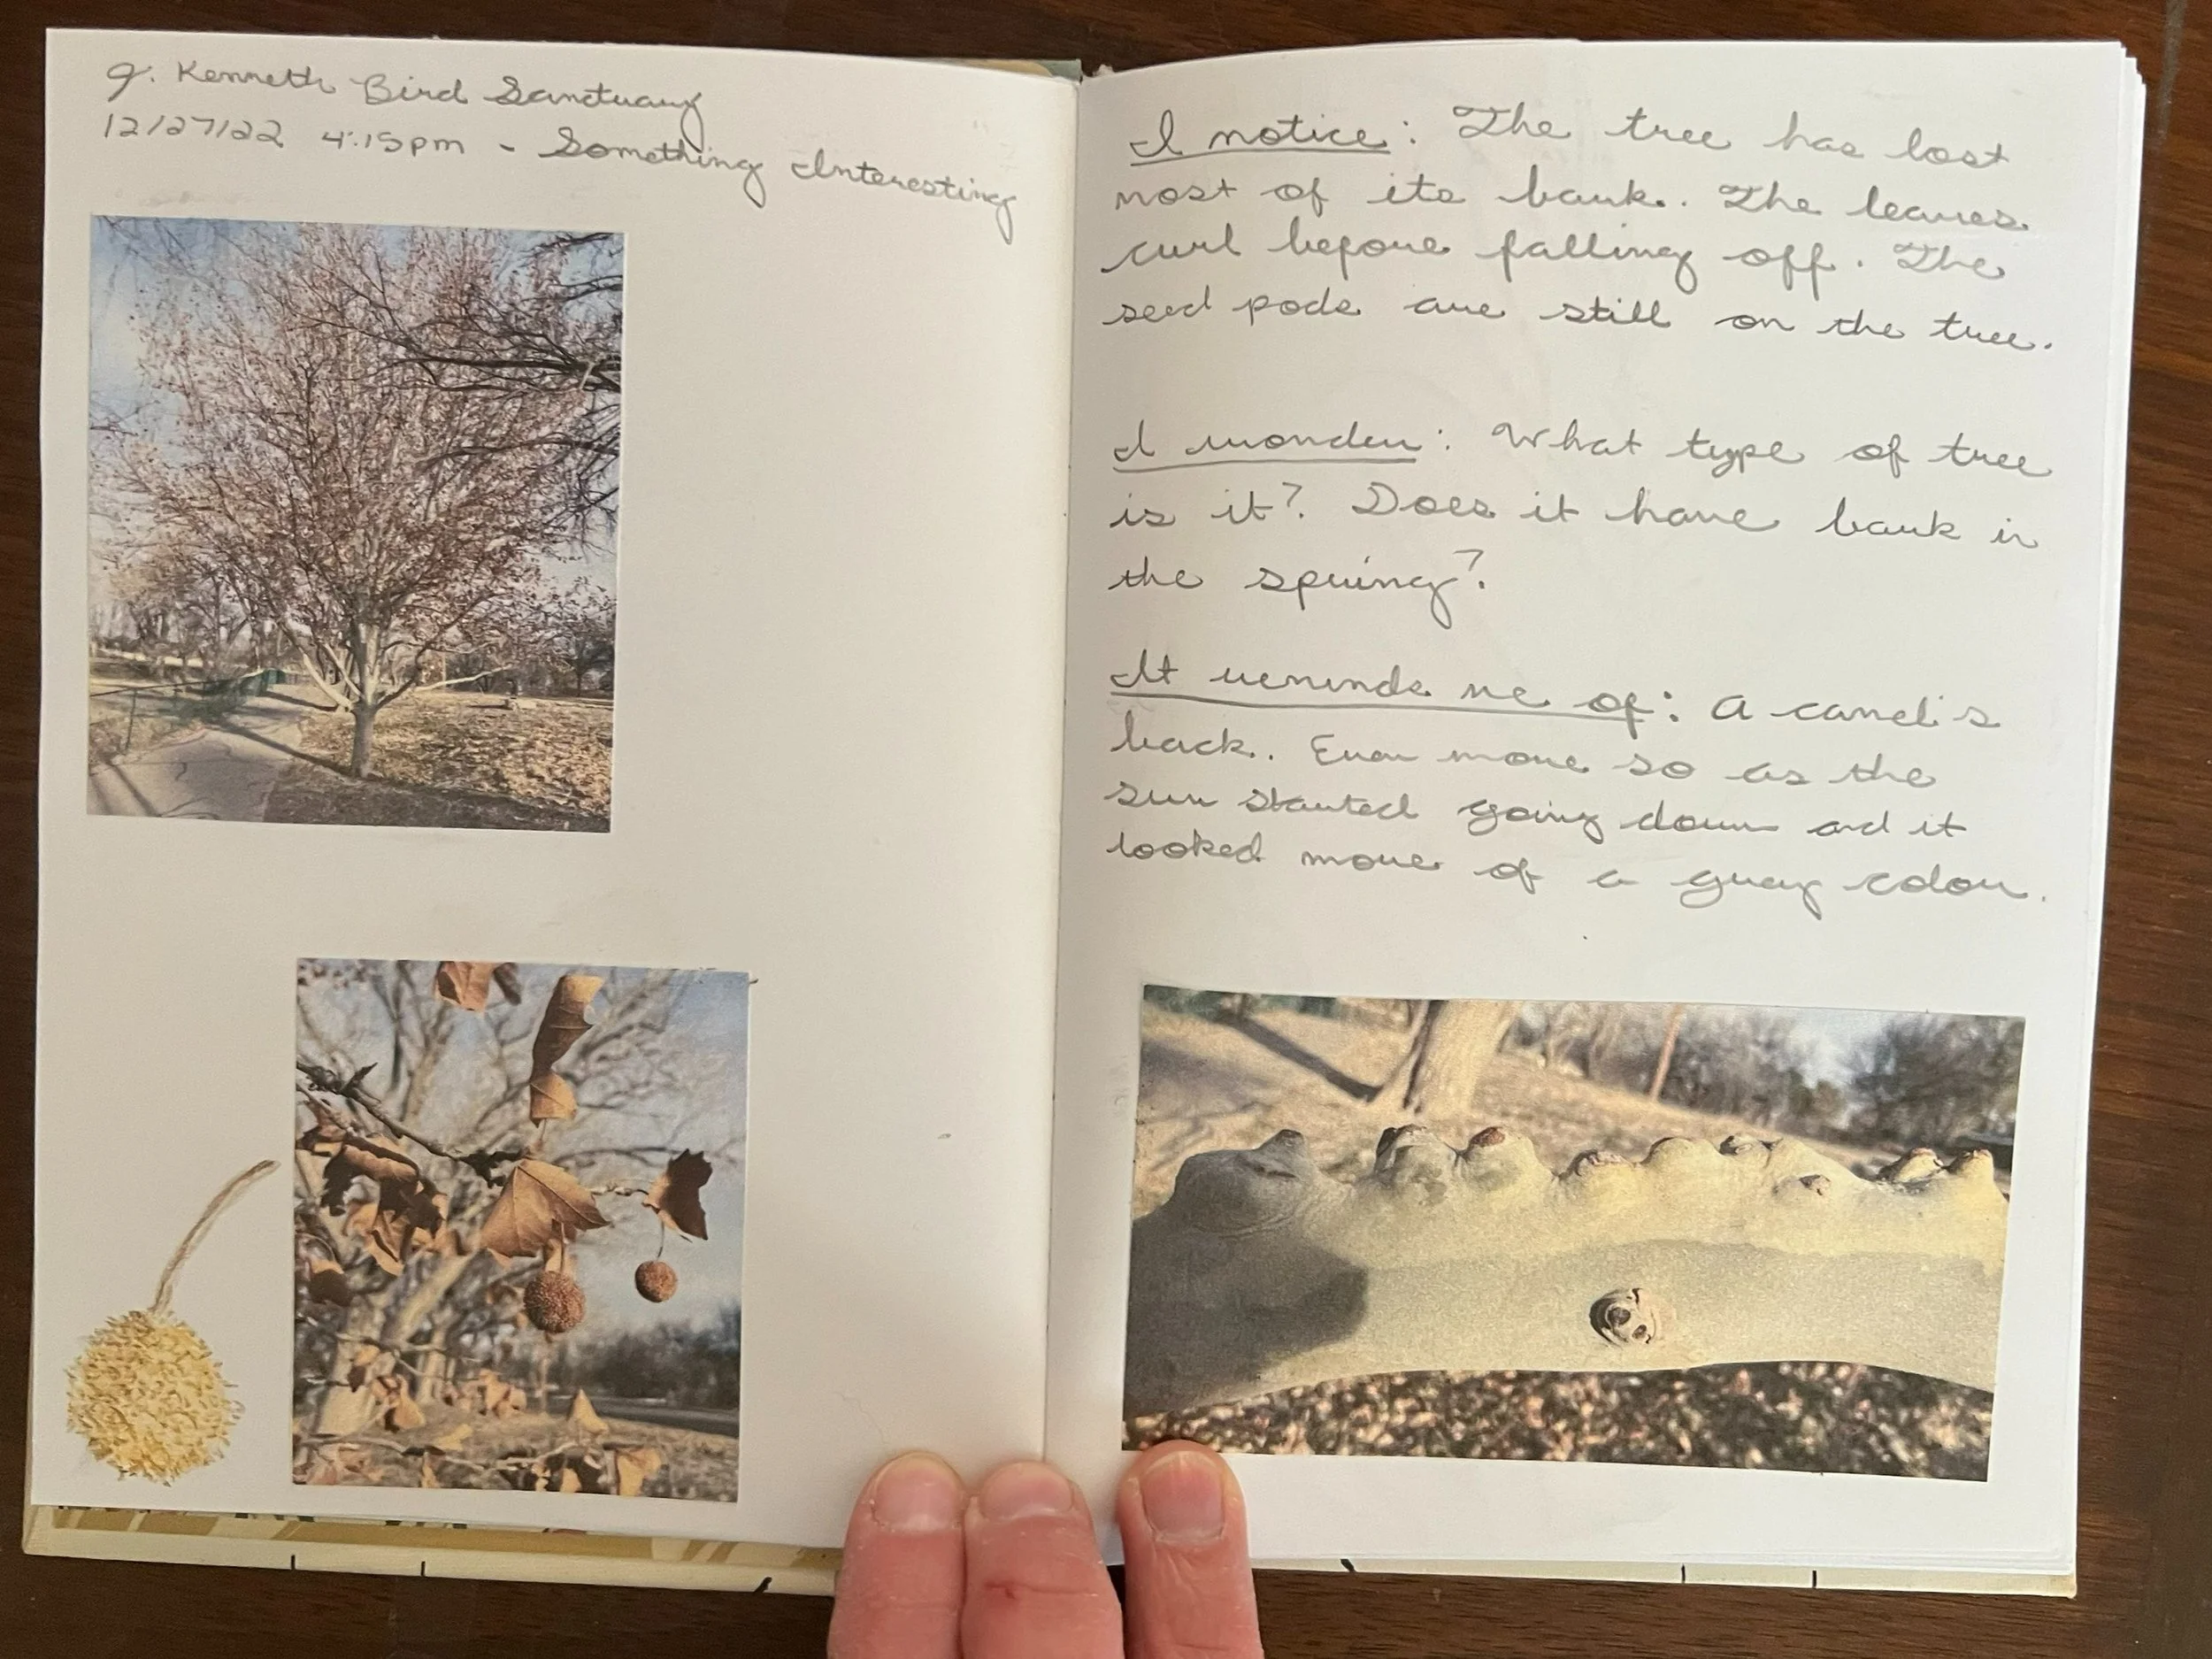 J. Kenneth Bird Sanctuary
12/27/22 4:15pm - Something Interesting
I notice: The tree has lost
most of its bark. The leaves
curl before falling off. The
seed pods are still on the tree.
I wonder: What type of tree
is it? Does it have bark in
the spring?
It reminds me of: A camel's
back. Even more so as the
sun started going down and it
looked more of a gray color.